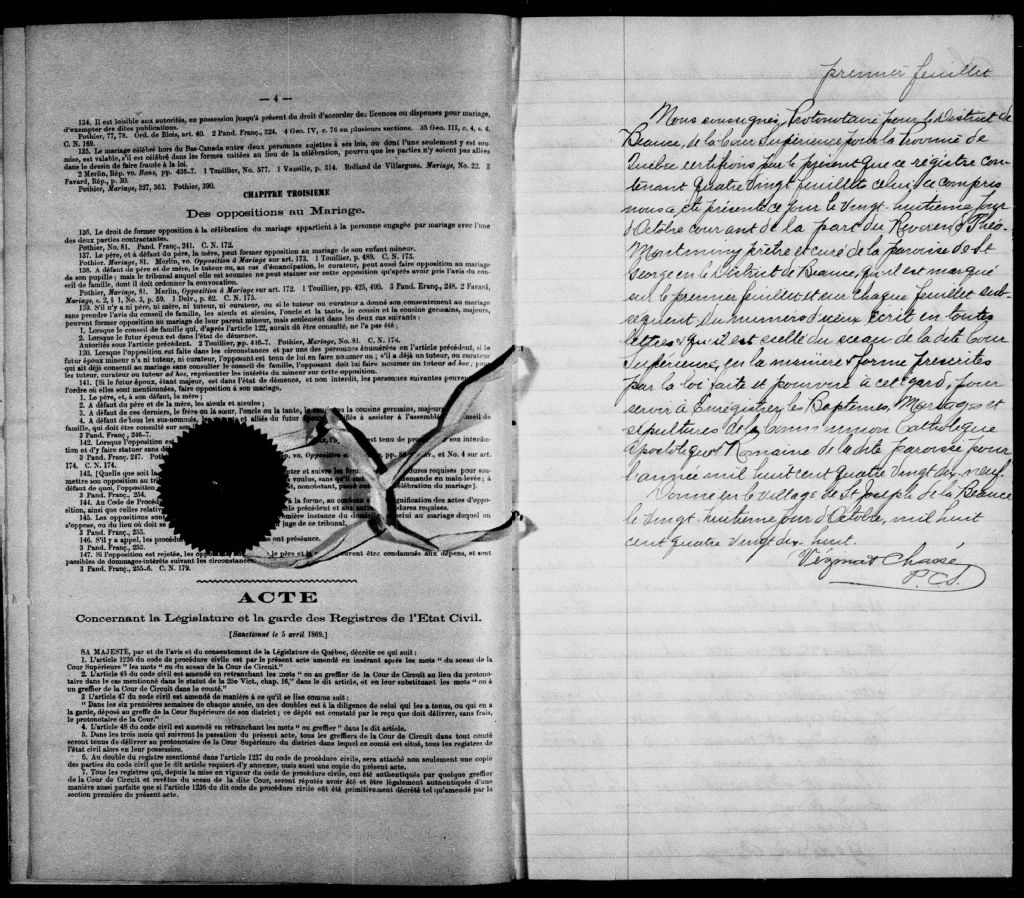 — 4 —
134. Il est loisible aux autorités, en possession jusqu'à présent du droit d'accorder des licences ou dispenses pour mariage,
d'exempter des dites publications.
Pothier, 77, 78. Ord. de Blois, art. 40. 2 Pand. Franç., 324. 4 Geo. IV, c. 76 en plusieurs sections. 35 Geo. III, c. 4, s. 4,
C. N. 169.
135. Le mariage célébré hors du Bas-Canada entre deux personnes sujettes à ses lois, ou dont l'une seulement y est sou-
mise, est valable, s'il est célébré dans les formes usitées au lieu de la célébration, pourvu que les parties n'y soient pas allées
dans le dessin de faire fraude à la loi.
2 Merlin, Rép. vo. Bans, pp. 436-7. 1 Touillier, No. 577. 1 Vazeille, p. 314. Rolland de Villargues. Mariage, No. 22. 3
Favard, Rép., p. 30.
Pothier, Mariage, 327, 363. Pothier, 390.
CHAPITRE TROISIEME
Des oppositions au Mariage.
136. Le droit de former opposition à la célébration du mariage appartient à la personne engagée par mariage avec l'une
des deux parties contractantes.
Pothier, No. 81. Pand. Franç., 241. C. N. 172.
137. Le père, et à défaut du père, la mère, peut former opposition au mariage de son enfant mineur.
Pothier, Mariage, 81. Merlin, vo. Opposition à Mariage sur art. 173. 1 Touillier, p. 489. C. N. 173.
138. A défaut de père et de mère, le tuteur ou, au cas d'émancipation, le curateur, peut aussi faire opposition au mariage
de son pupille; mais le tribunal auquel elle est soumise ne peut statuer sur cette opposition qu'après avoir pris l'avis du con-
seil de famille, dont il doit ordonner la convocation.
Pothier, Mariage, 81. Merlin, Opposition à Mariage sur art. 172. 1 Touillier, pp. 425, 490. 3 Pand. Franç., 248. 2 Favard,
Mariage, s. 2, § 1, No. 3, p. 59. 1 Delv., p. 62. C. N. 175.
139. S'il n'y a ni père, ni mère, ni tuteur, ni curateur, ou si le tuteur ou curateur a donné son consentement au mariage
sans prendre l'avis du conseil de famille, les aïeuls et aïeules, l'oncle et la tante, le cousin et la cousine germains, majeurs,
peuvent former opposition au mariage de leur parent mineur, mais seulement dans les deux cas suivants:
1. Lorsque le conseil de famille qui, d'après l'article 122, aurait dû être consulté, ne l'a pas été;
2. Lorsque le futur époux est dans l'état de démence.
Autorités sous l'article précédent. 2 Touillier, pp. 416-7. Pothier, Mariage, No. 81. C. N. 174.
130. Lorsque l'opposition est faite dans les circonstances et par une des personnes énumérées en l'article précédent, si le
futur époux mineur n'a ni tuteur, ni curateur, l'opposant est tenu de lui en faire nommer un; s'il a déjà un tuteur, ou curateur
qui ait déjà consenti au mariage sans consulter le conseil de famille, l'opposant doit lui faire nommer un tuteur ad hoc, pour
les tuteur, curateur ou tuteur ad hoc, représenter les intérêts du mineur sur cette opposition.
141. (Si le futur époux, étant majeur, est dans l'état de démence, et non interdit, les personnes suivantes peuvent
l'ordre où elles sont mentionnées, faire opposition à son mariage.
1. Le père, et, à son défaut, la mère;
2. A défaut du père et de la mère, les aïeuls et aïeules;
3. A défaut de ces derniers, le frère ou la sœur, l'oncle ou la tante, la cousine germains, majeurs
4. A défaut de tous les sus-nommés, les et alliés du futur à assister à l'assemblée conseil de
famille, qui doit être consulté sur son célébration du mariage].
3 Pand. Franç., 246-7.
142. Lorsque l'opposition est l'op est tenu de pro son interdic-
tion et d'y faire statuer sans d
3 Pand. Franç. 247. vo. Opposition pp. et No. 4 sur art.
174. C. N. 174.
143. [Quelle que soit la ter et suivre les formalités requises pour sou-
mettre son opposition au tr voulus, sans qu'il soit demande en main-levée; à
défaut de quoi, l'opposition nonobstant, passé
3 Pand. Franç., 254.
144. Au Code de Procéd à la forme, au cont ignification des actes d'oppo-
sition, ainsi que celles relative cle précédent et aux autres requises.
145. Les oppositions sont emière instance du domicile au mariage duquel on
s'oppose, ou du lieu où doit se juge de ce tribunal.
3 Pand. Franç., 253.
146. S'il y a appel, les procéd ont préséance.
3 Pand. Franç., 253.
147. Si l'opposition est rejetée, les opp le père et la uvent être condamnés aux dépens, et sont
passibles de dommages-intérêts suivant les circonstances.
3 Pand. Franç., 255-6. C. N. 179.
ACTE
Concernant la Législature et la garde des Registres de l'Etat Civil.
[Sanctionné le 5 avril 1869.]
SA MAJESTÉ, par et de l'avis et du consentement de la Législature de Québec, décrète ce qui suit:
1. L'article 1236 du code de procédure civile est par le présent acte amendé en insérant après les mots "du sceau de la
Cour Supérieure" les mots "ou du sceau de la Cour de Circuit."
2. L'article 45 du code civil est amendé en retranchant les mots "ou au greffier de la Cour de Circuit au lieu du protono-
taire dans le cas mentionné dans le statut de la 25e Vict., chap. 16," dans le dit article, et en leur substituant les mots "ou à
un greffier de la Cour de Circuit dans le comté."
3 L'article 47 du code civil est amendé de manière à ce qu'il se lise comme suit:
"Dans les six premières semaines de chaque année, un des doubles est à la diligence de celui qui les a tenus, ou qui en a
la garde, déposé au greffe de la Cour Supérieure de son district; ce dépôt est constaté par le reçu que doit délivrer, sans frais,
le protonotaire de la Cour."
4. L'article 48 du code civil est amendé en retranchant les mots "ou greffier" dans le dit article.
5. Dans les trois mois qui suivront la passation du présent acte, tous les greffiers de la Cour de Circuit dans tout comté
seront tenus de délivrer au protonotaire de la Cour Supérieure du district dans lequel ce comté est situé, tous les registres de
l'état civil alors en leur possession.
6. Au double du registre mentionné dans l'article 1237 du code de procédure civile, sera attaché non seulement une copie
des parties du code civil que le dit article requiert d'y annexer, mais aussi une copie du présent acte.
7. Tous les registres qui, depuis la mise en vigueur du code de procédure civile, ont été authentiqués par quelque greffier
de la Cour de Circuit et revêtus du sceau de la dite Cour, seront réputés avoir été et être légalement authentiqués d'une
manière aussi parfaite que si l'article 1236 du dit code de procédure civile eût été primitivement décrété tel qu'amendé par la
section première du présent acte.
premier feuillet
Nous soussignés, Protonotaire pour le District de
Beauce, de la Cour Supérieure pour la Province de
Québec certifions par le présent que ce registre con
tenant Quatre vingt feuillets celui-ce compris
nous a été présenté ce jour le Vingt-huitième jour
d'Octobre courant de la part du Reverend Théo.
Montminy prêtre et curé de la paroisse de St
George en le District de Beauce, qu'il est marqué
sur le premier feuillet et sur chaque feuillet sub-
séquent, du numéro d'iceux Ecrit en toutes
lettres & qu'il est scellé du sceau de la dite Cour
Supérieure, en la manière & forme prescrites
par la loi faite et pourvue à cet égard, pour
servir à Enrégistrer les Baptemes, Mariages et
sépultures de la Communion Catholique
Apostolique & Romaine de la dite paroisse pour
l'année mil huit cent quatre vingt dix-neuf.
Donné en le Village de St Joseph de la Beauce
le vingt-huitième jour d'Octobre, mil huit
cent quatre vingt dix-huit.
Vézina & Chassé
P. C. S.